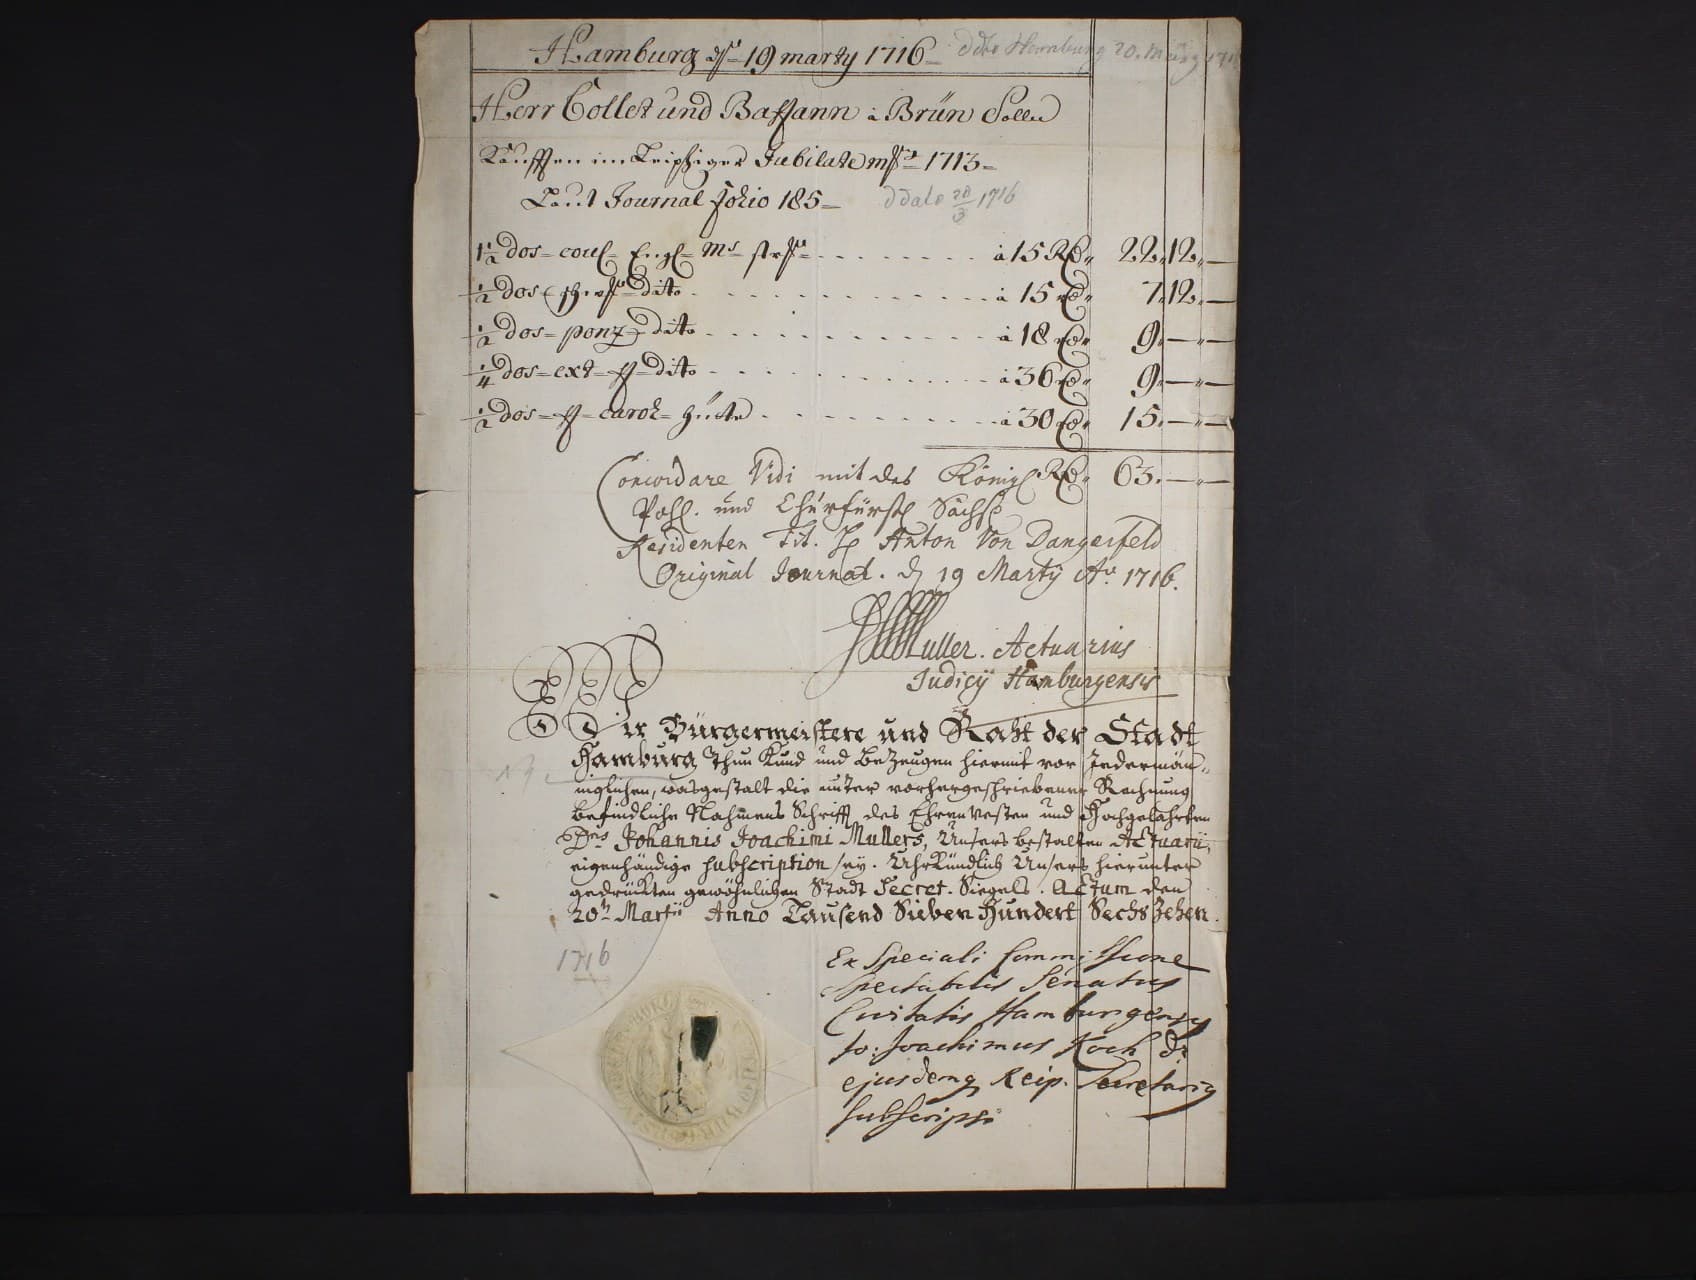 Hamburg 19 marty 1716 ddto Hamburg 20. März 171
Herr Collet und Bassann à Brün Sollen
Kauffen im Leipziger Jubilate mss 1713
Laut Journal folio 185 ddato 20/3 1716
1½ dos= coul= Engl= Ms à 15 Rth 22 12 —
½ dos dito à 15 Rth 7 12 —
½ dos= ponz dito à 18 Rth 9 — —
¼ dos= ext= ff= dito à 36 Rth 9 — —
½ dos= ff= carol= hüte à 30 Rth 15 — —
Rth 63 — —
Concordare Vidi mit des Königl
Pohl. und Churfürstl Sächss
Residenten Tit. H Anton Von Dangerfeld
Original Journal. d 19 Martij Ao 1716.
Muller. Actuarius
Judicij Hamburgensis
Wir Bürgermeistere und Raht der Stadt
Hamburg Thun Kund und Bezeugen hiermit vor Jedermän=
niglichen, wasgestalt die unter vorhergeschriebener Rechnung
befindliche Nahmens Schrifft des EhrenVesten und Hochgelahrten
Dns Johannis Joachimi Mullers, Unsers bestalten Actuarii,
eigenhändige subscription sey. Uhrkündlich Unsers hierunter
gedrückten gewöhnlichen Stadt Secret. Siegels. Actum den
20ten Martii Anno Tausend Sieben Hundert Sechszehen.
1716
Ex Speciali Commissione
Spectabilis Senatus
Civitatis Hamburgensis
Jo: Joachimus Koch Dr
ejusdemq Reip. Secretarius
subscripsi